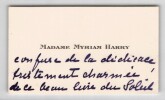 MADAME MYRIAM HARRY
confuse de la dédicace
tristement charmée
de ce beau livre du Soleil